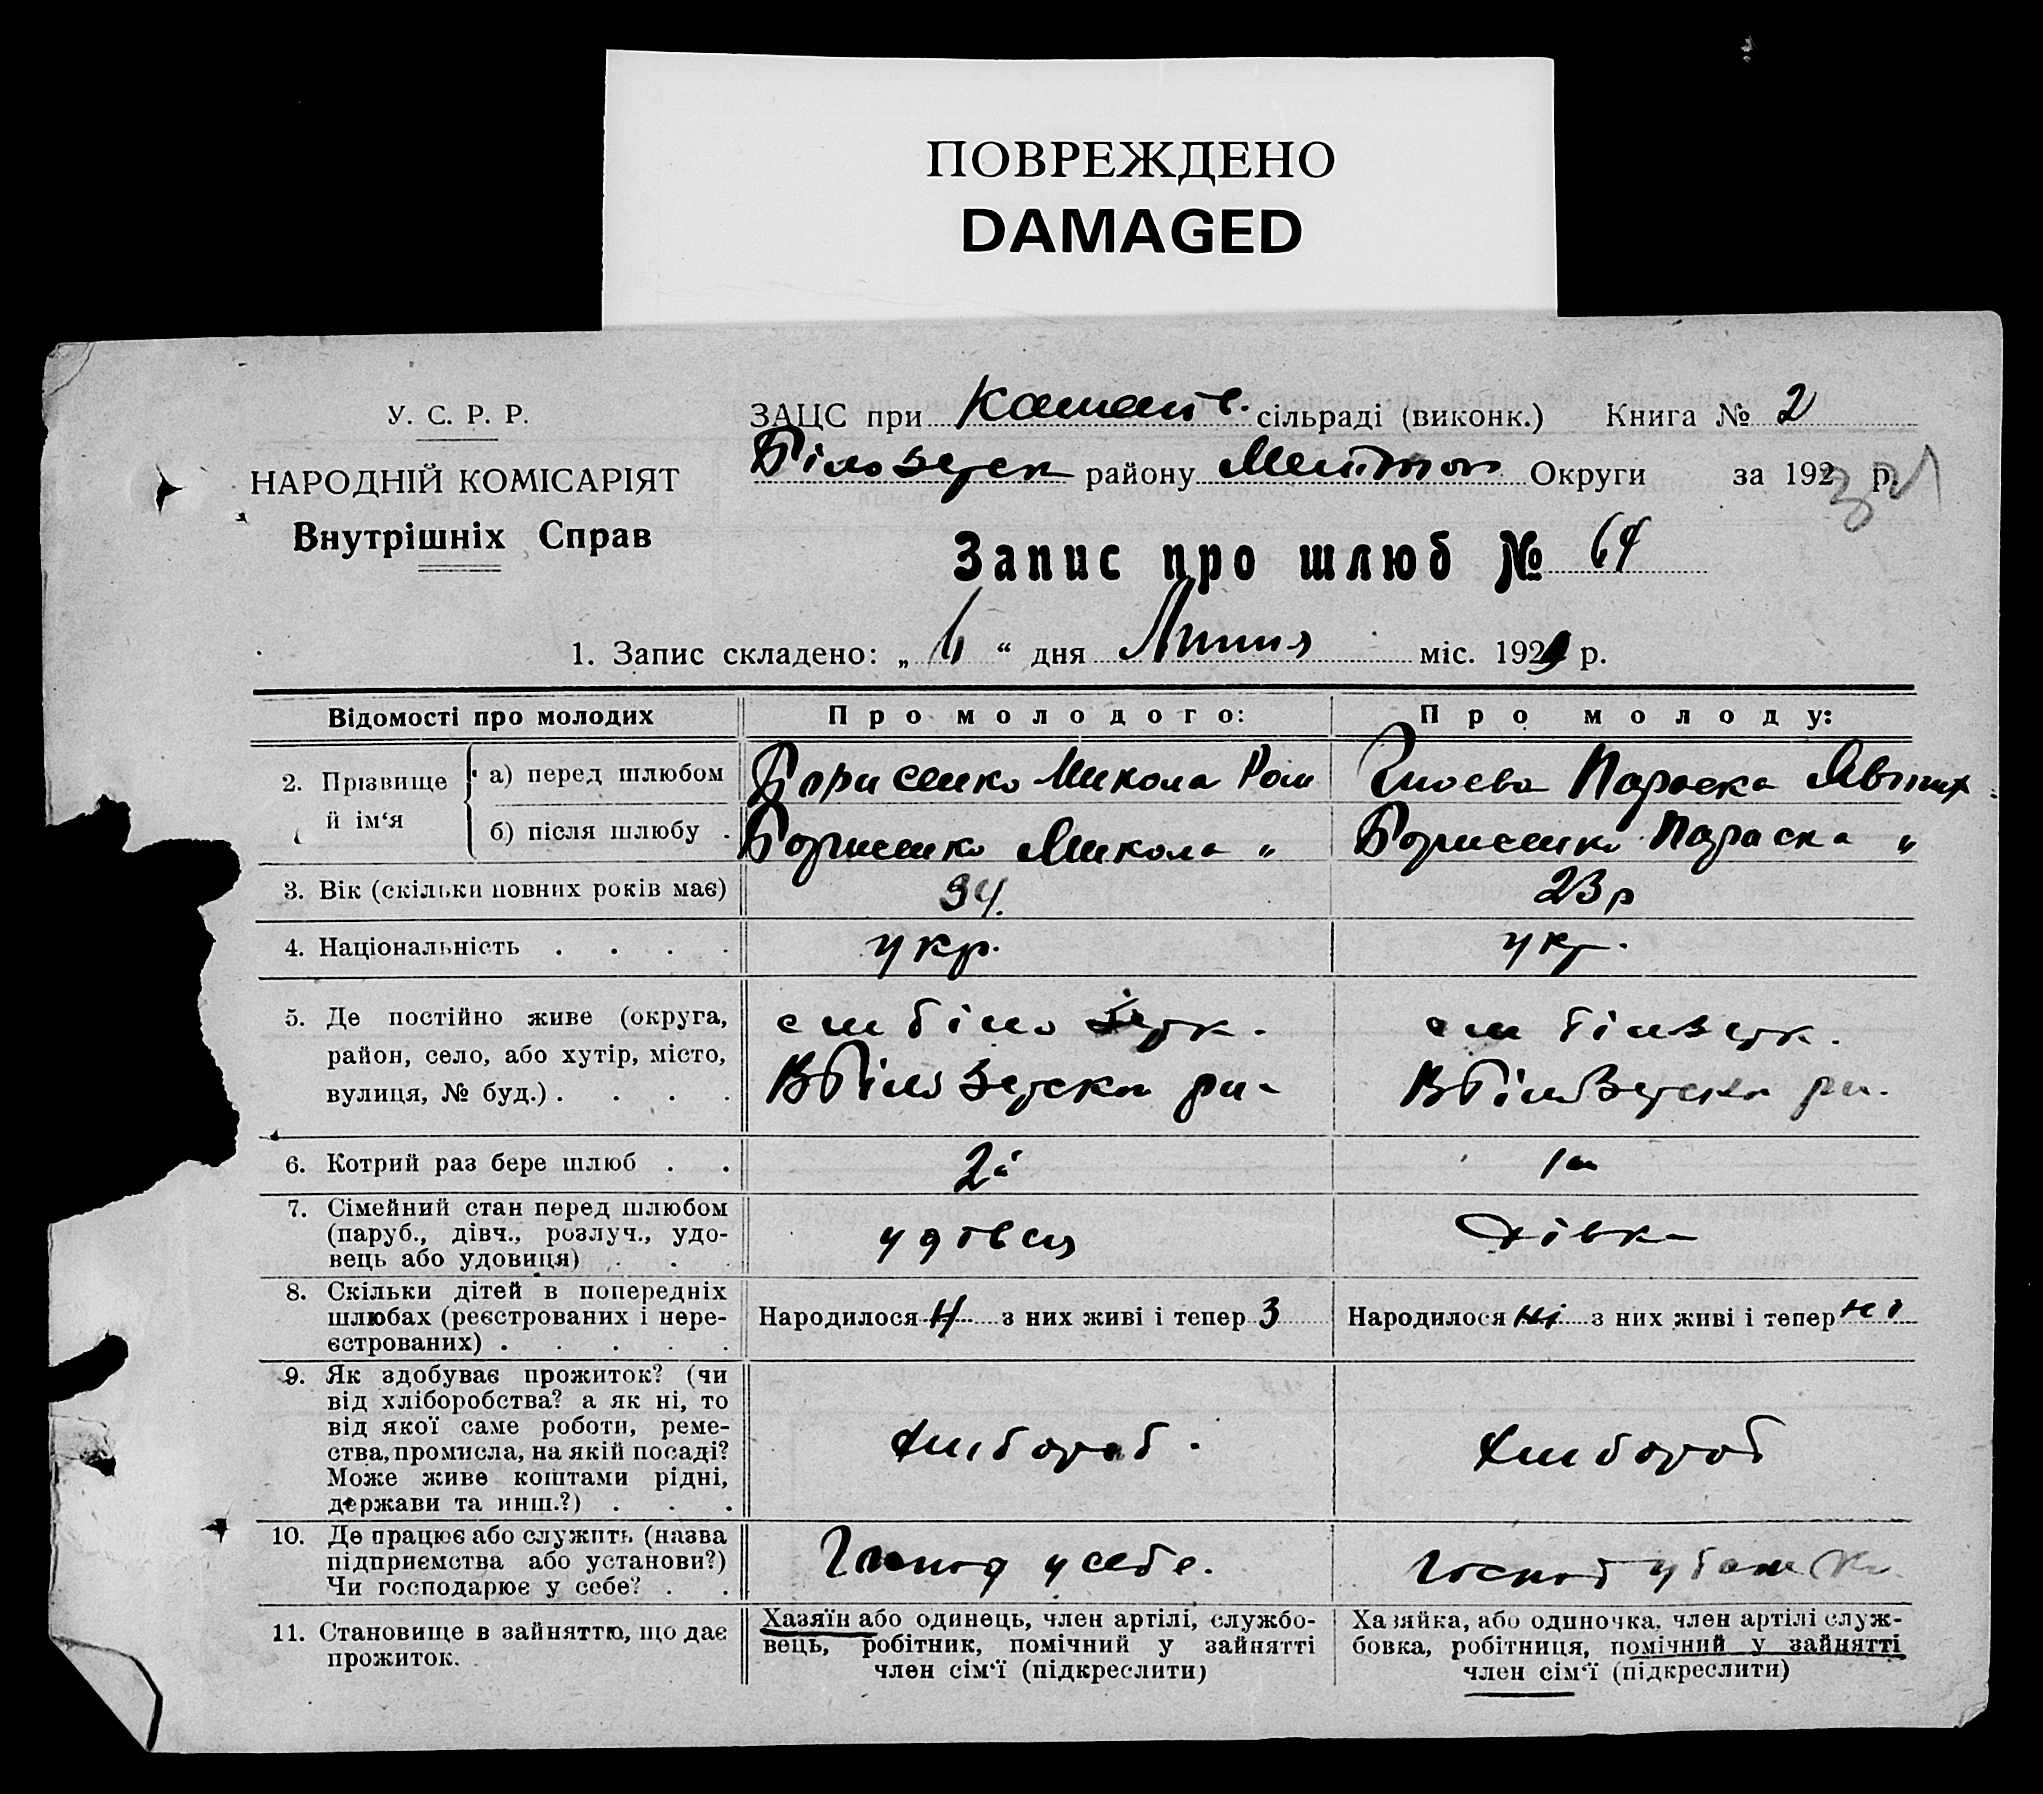 ПОВРЕЖДЕНО
DAMAGED
У. С. Р. Р.
НАРОДНІЙ КОМІСАРІЯТ
Внутрішніх Справ
ЗАЦС при сільраді (виконк.) Книга № 2
Білозерск району Мелітоп Округи за 192 р.
Запис про шлюб № 64
1. Запис складено: „ “ дня Липня міс. 1929 р.
Відомості про молодих
Про молодого:
Про молоду:
2. Прізвище й ім‘я
а) перед шлюбом
Борисенко Микола Ром
Параска
б) після шлюбу .
Борисенко Микола "
Борисенко Параска "
3. Вік (скільки повних років має)
34.
23 р
4. Національність . . . .
укр.
укр.
5. Де постійно живе (округа,
район, село, або хутір, місто,
вулиця, № буд.) . . . .
В Білозерска
В Білозерска
6. Котрий раз бере шлюб . .
2й
1ш
7. Сімейний стан перед шлюбом
(паруб., дівч., розлуч., удо-
вець або удовиця) . . .
удовець
дівка
8. Скільки дітей в попередніх
шлюбах (реєстрованих і нере-
єстрованих) . . . . .
Народилося 4 з них живі і тепер 3
Народилося ні з них живі і тепер ні
9. Як здобуває прожиток? (чи
від хліборобства? а як ні, то
від якої саме роботи, реме-
ства, промисла, на якій посаді?
Може живе коштами рідні,
держави та инш.?) . . .
хлібороб.
хлібороб
10. Де працює або служить (назва
підприємства або установи?)
Чи господарює у себе? . .
Господ у себе.
Господ у
11. Становище в зайняттю, що дає
прожиток.
Хазяїн або одинець, член артілі, службо-
вець, робітник, помічний у зайнятті
член сім‘ї (підкреслити)
Хазяйка, або одиночка, член артілі служ-
бовка, робітниця, помічний у зайнятті
член сім‘ї (підкреслити)